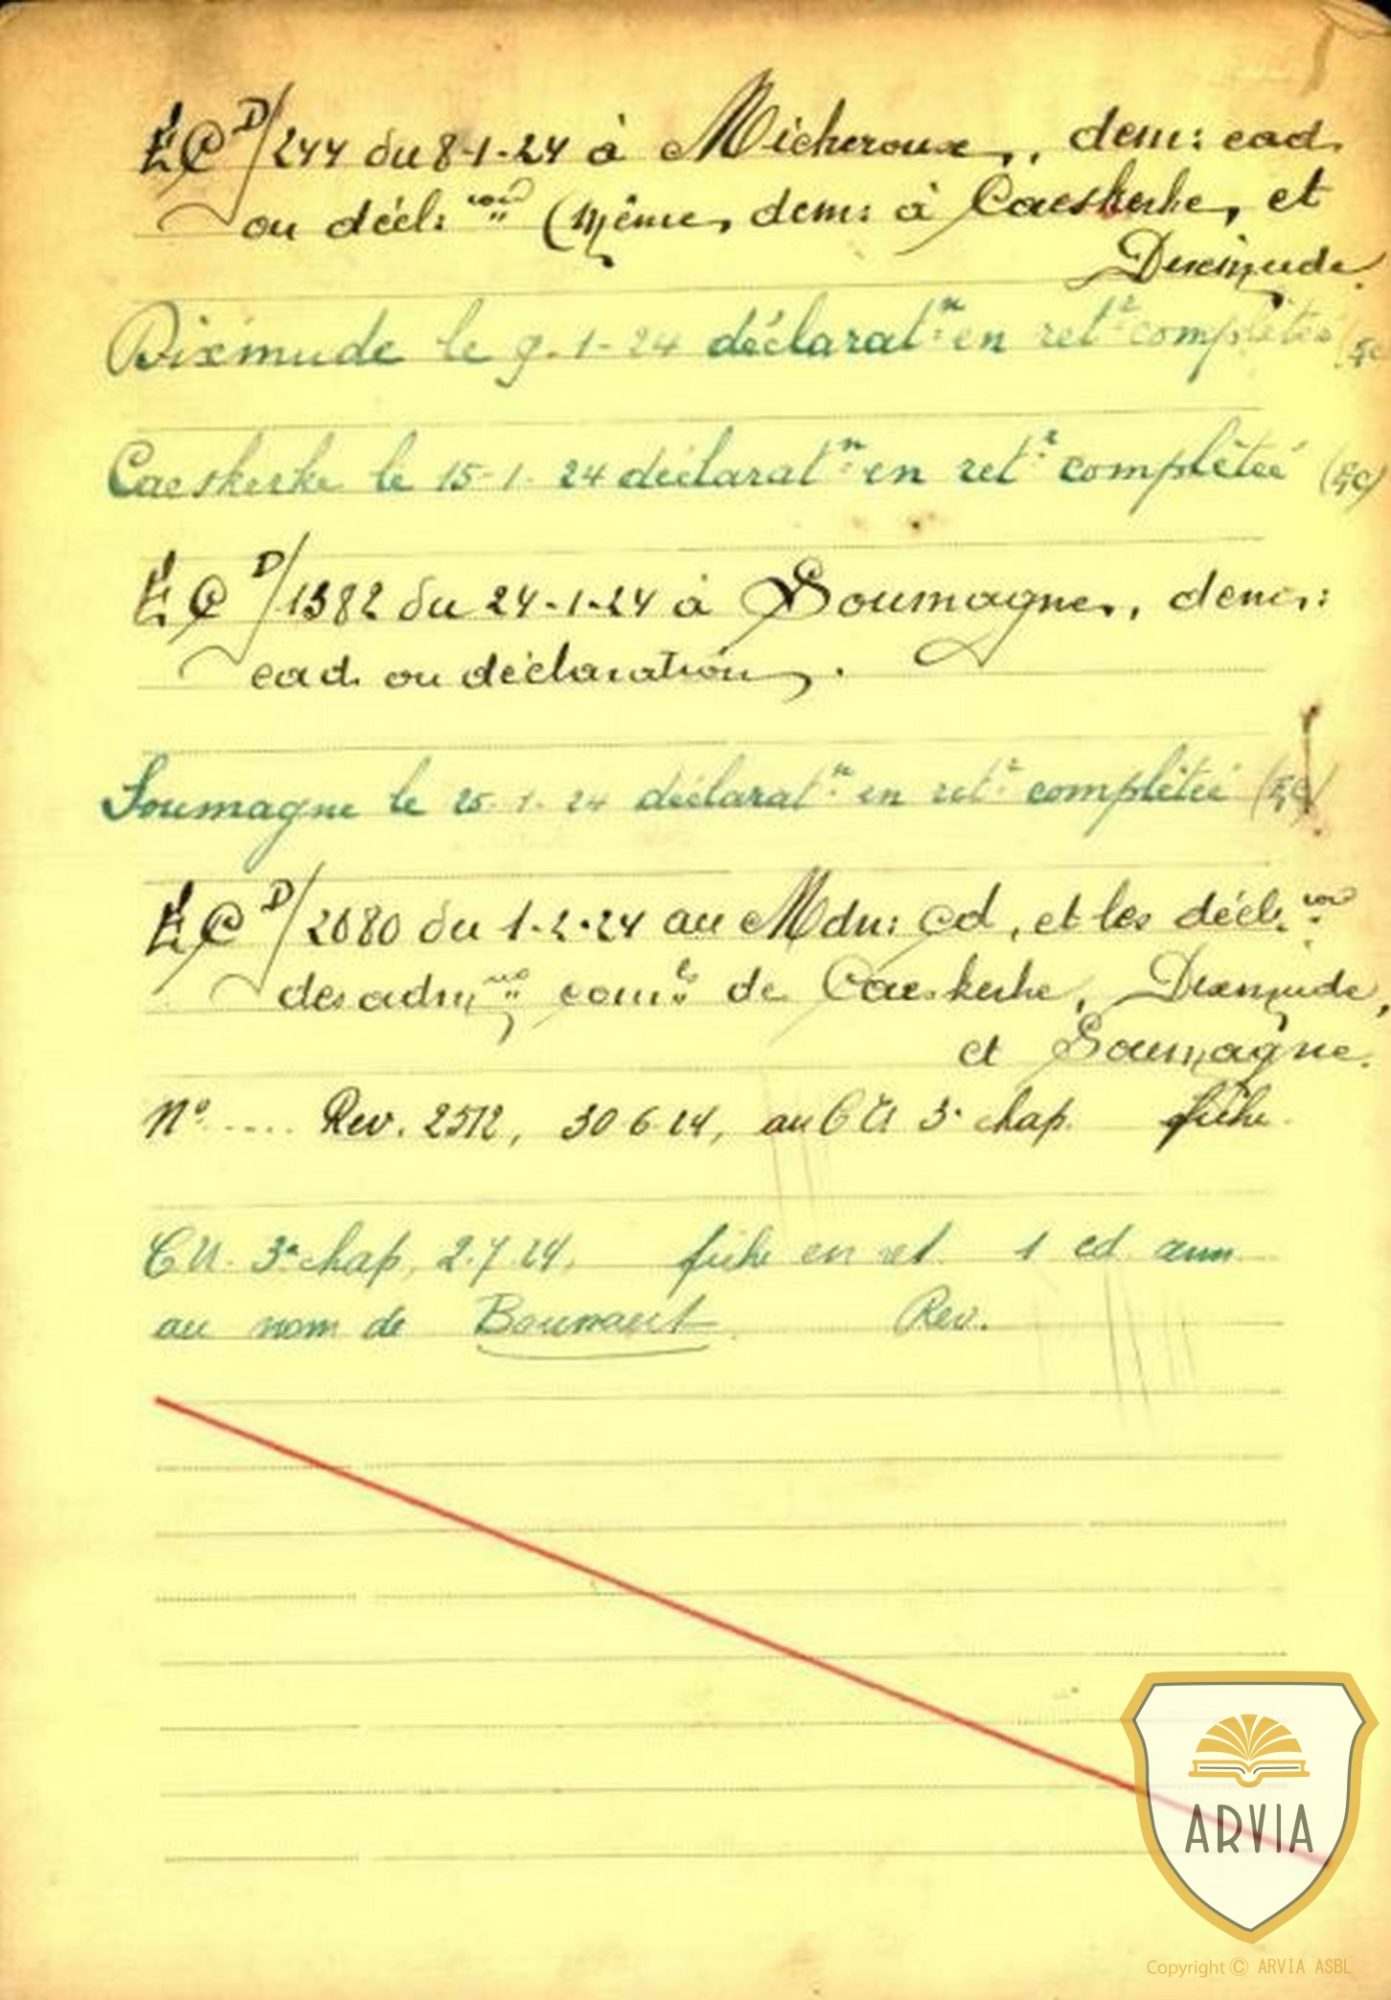 EC D/244 du 8-1-24 à Micheroux, dem: cad.
ou décl: ion (Même, dem: à Caeskerke, et
Dixmude.
Dixmude le 9.1-24 déclarat:n en ret:r complétée (EC
Caeskerke le 15-1-24 déclarat:n en ret:r complétée (EC)
EC D/1382 du 24-1-24 à Soumagne, dem:
cad. ou déclaration.
Soumagne le 25-1-24 déclarat:n en ret:r complétée (EC)
EC D/2080 du 1-2-24 au Mdn: cd, et les décl: ions
des adm ons com:les de Caeskerke, Dixmude,
et Soumagne.
N° .... Rev. 2512, 30 6 24, au CU 3e chap. fiche
CU. 3e chap, 2.7.24, fiche en ret. 1 cd. ann
au nom de Rev.
ARVIA
Copyright © ARVIA ASBL